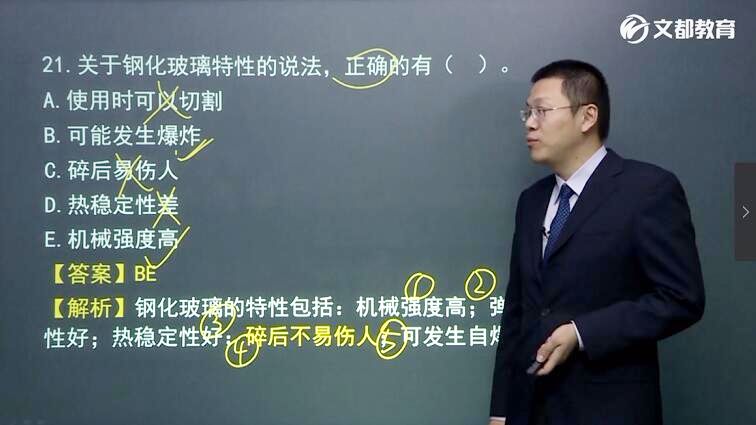 文都教育
21.关于钢化玻璃特性的说法，正确的有（ ）。
A.使用时可以切割
B.可能发生爆炸
C.碎后易伤人
D.热稳定性差
E.机械强度高
【答案】BE
【解析】钢化玻璃的特性包括：机械强度高；弹
性好；热稳定性好；碎后不易伤人；可发生自爆
① ②
③
④ ⑤